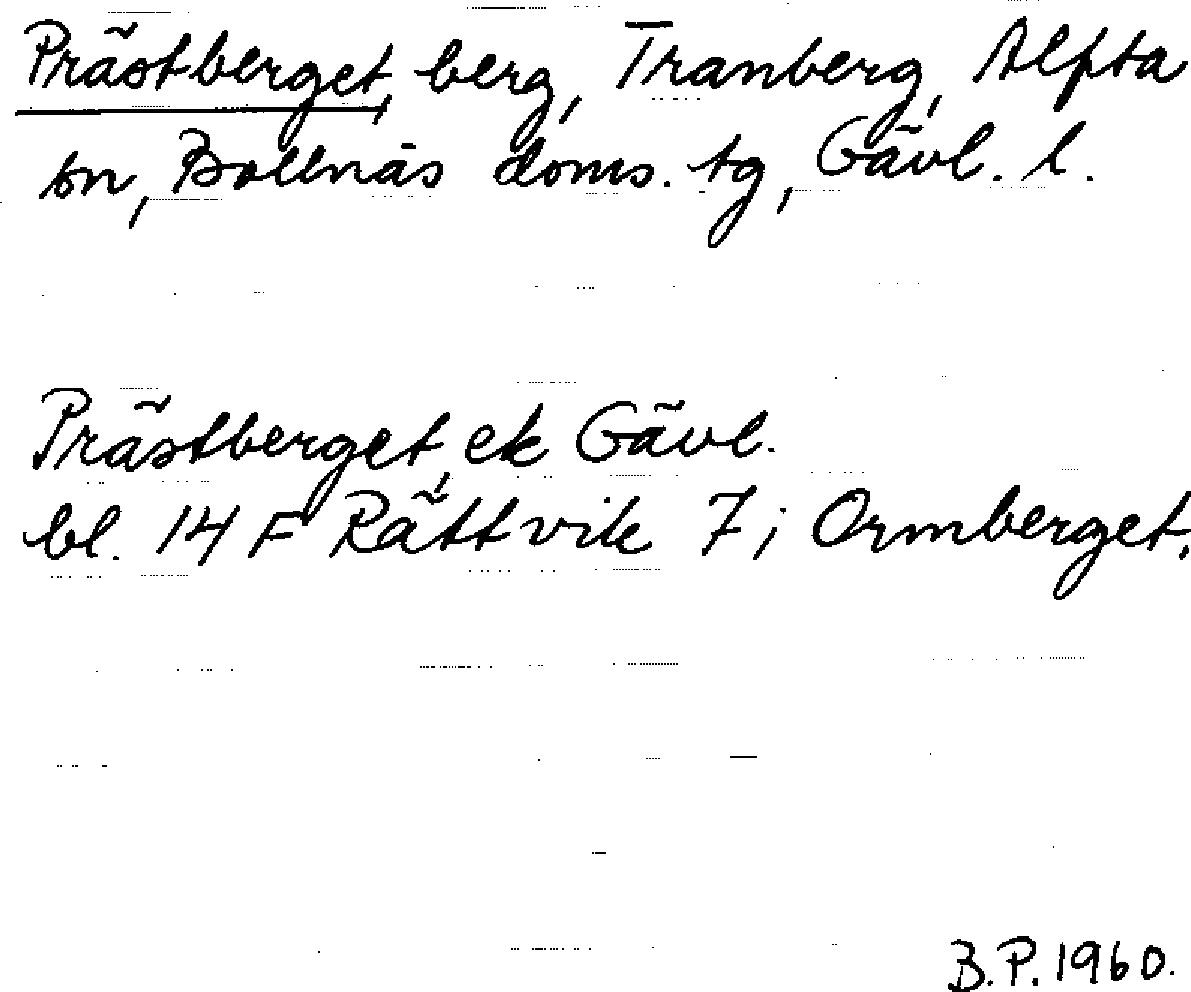 Prästberget, berg, Tranberg, Alfta
sn, Bollnäs doms. tg, Gävl. l.
Prästberget, ek Gävl.
bl. 14 F Rättvik 7 j Ormberget.
B.P. 1960.